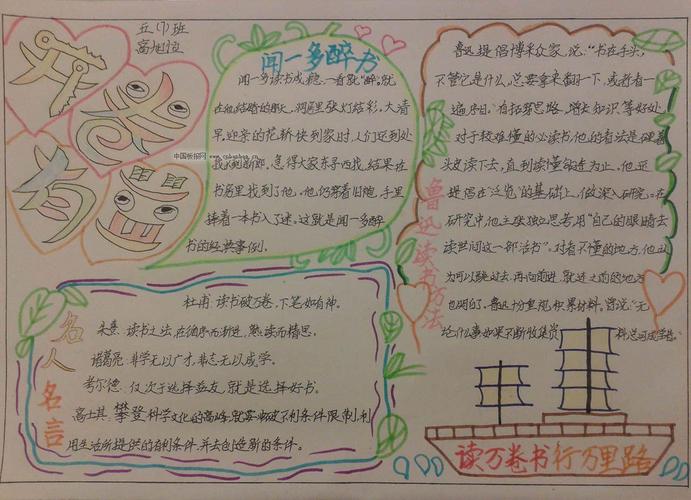 五(7)班
开卷有益
中国板报网
闻一多醉书
闻一多读书成瘾,一看就"醉",就
在他结婚的那天,洞房里张灯结彩。大清
早迎亲的花轿快到家时,人们还到处
找不到新郎。急得大家东寻西找,结果在
书房里找到了他。他仍穿着旧袍,手里
捧着一本书入了迷。这就是闻一多醉
书的经典事例。
鲁迅读书方法
鲁迅提倡博采众家,说:"书在手头,
不管它是什么,总要拿来翻一下,或者看一
遍序目。"有拓穿思路,增长知识等好处
对于较难懂的必读书,他的看法是硬着
头皮读下去,直到读懂
提倡在"泛览"的基础上,
研究中,他主张独立思考,用"自己的眼睛去
读世间这一部活书"。对看不懂的地方,他
为可以跳过去,再向前进,就连之前的地方
也明白了。鲁迅十分重视积累材料。曾说:"无
论什么事如果不断收集资料
名人名言
杜甫:读书破万卷,下笔如有神。
朱熹:读书之法,在循序而渐进,熟读而精思。
诸葛亮:非学无以广才,非志无以成学。
考尔德:仅次于选择益友,就是选择好书。
高士其:攀登科学文化的高峰,就要冲破不利条件限制,利
用生活所提供的有利条件,并去创造新的条件。
读万卷书行万里路